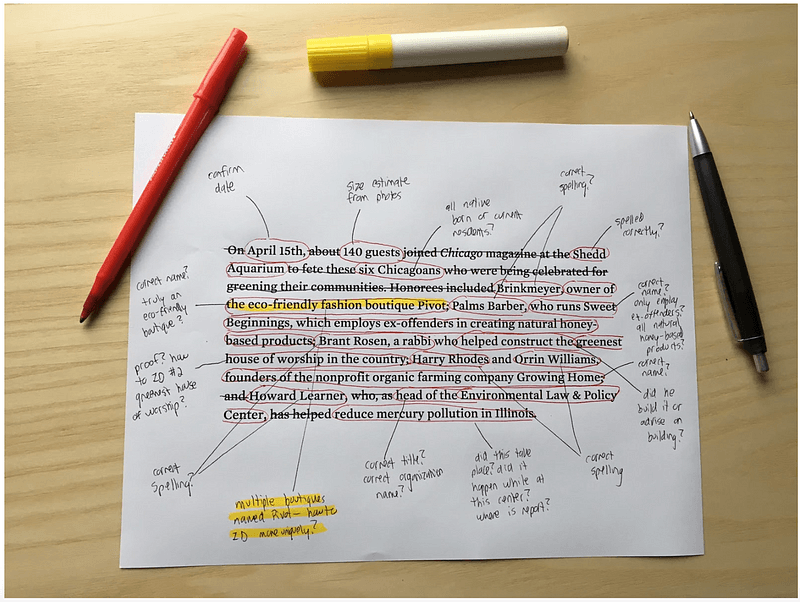 confirm
date
size estimate
from photos
all native
born or current
residents?
correct
spelling?
spelled
correctly?
On April 15th, about 140 guests joined Chicago magazine at the Shedd
Aquarium to fete these six Chicagoans who were being celebrated for
greening their communities. Honorees included Brinkmeyer, owner of
the eco-friendly fashion boutique Pivot; Palms Barber, who runs Sweet
Beginnings, which employs ex-offenders in creating natural honey-
based products; Brant Rosen, a rabbi who helped construct the greenest
house of worship in the country; Harry Rhodes and Orrin Williams,
founders of the nonprofit organic farming company Growing Home;
and Howard Learner, who, as head of the Environmental Law & Policy
Center, has helped reduce mercury pollution in Illinois.
correct name?
truly an
eco-friendly
boutique?
proof? how
to ID #2
greenest house
of worship?
correct
name?
only employ
ex-offenders?
all natural
honey-based
products?
correct
name?
did he
build it or
advise on
building?
correct
spelling?
multiple boutiques
named Pivot - how to
ID more uniquely?
correct title?
correct organization
name?
did this take
place? did it
happen while at
this center?
where is report?
correct
spelling